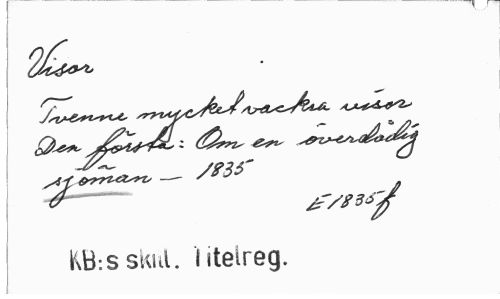 Visor
Tvenne mycket vackra visor
Den första: Om en överdådig
sjöman — 1835
E1835f
KB:s skill. Titelreg.